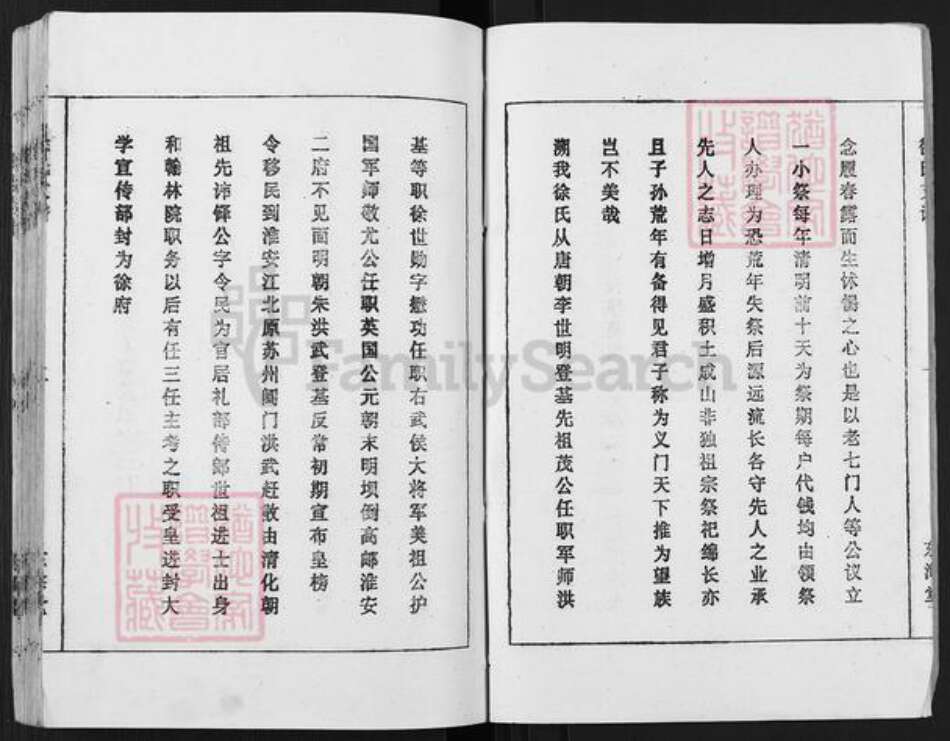 念履春露而生怵惕之心也是以老七门人等公议立
一小祭每年清明前十天为祭期每户代钱均由领祭
人办理为恐荒年失祭后源远流长各守先人之业承
先人之志日增月盛积土成山非独祖宗祭祀绵长亦
且子孙荒年有备得见君子称为义门天下推为望族
岂不美哉
溯我徐氏从唐朝李世明登基先祖茂公任职军师洪
基等职徐世勋字懋功任职右武侯大将军美祖公护
国军师敬尤公任职英国公元朝末明坝倒高邮淮安
二府不见面明朝朱洪武登基反常初期宣布皇榜
令移民到淮安江北原苏州阊门洪武赶散由清化朝
祖先讳铎公字令民为官居礼部侍郎世祖进士出身
和翰林院职务以后有任三任主考之职受皇进封大
学宣传部封为徐府
东海堂
FamilySearch